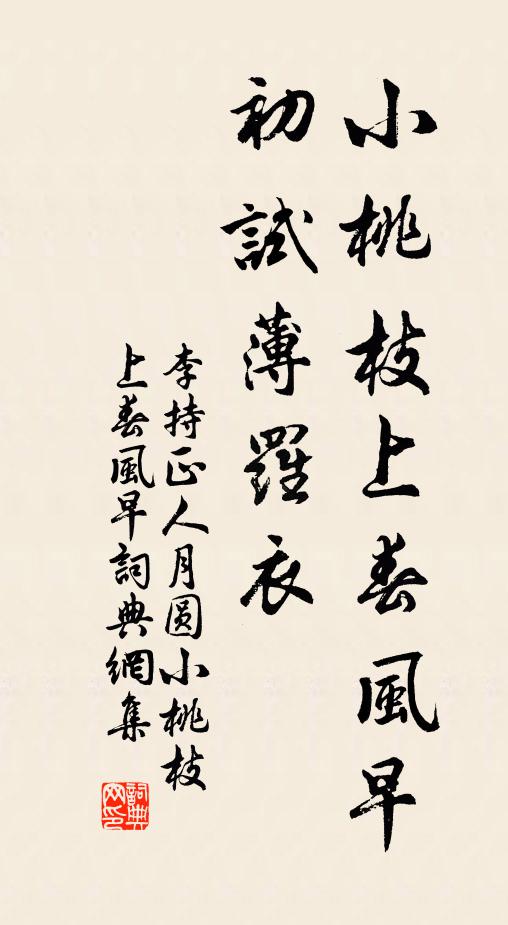 小桃枝上春風早
初試薄羅衣
李持正人月圆小桃枝
上春風早詞典網集
詞典
网印